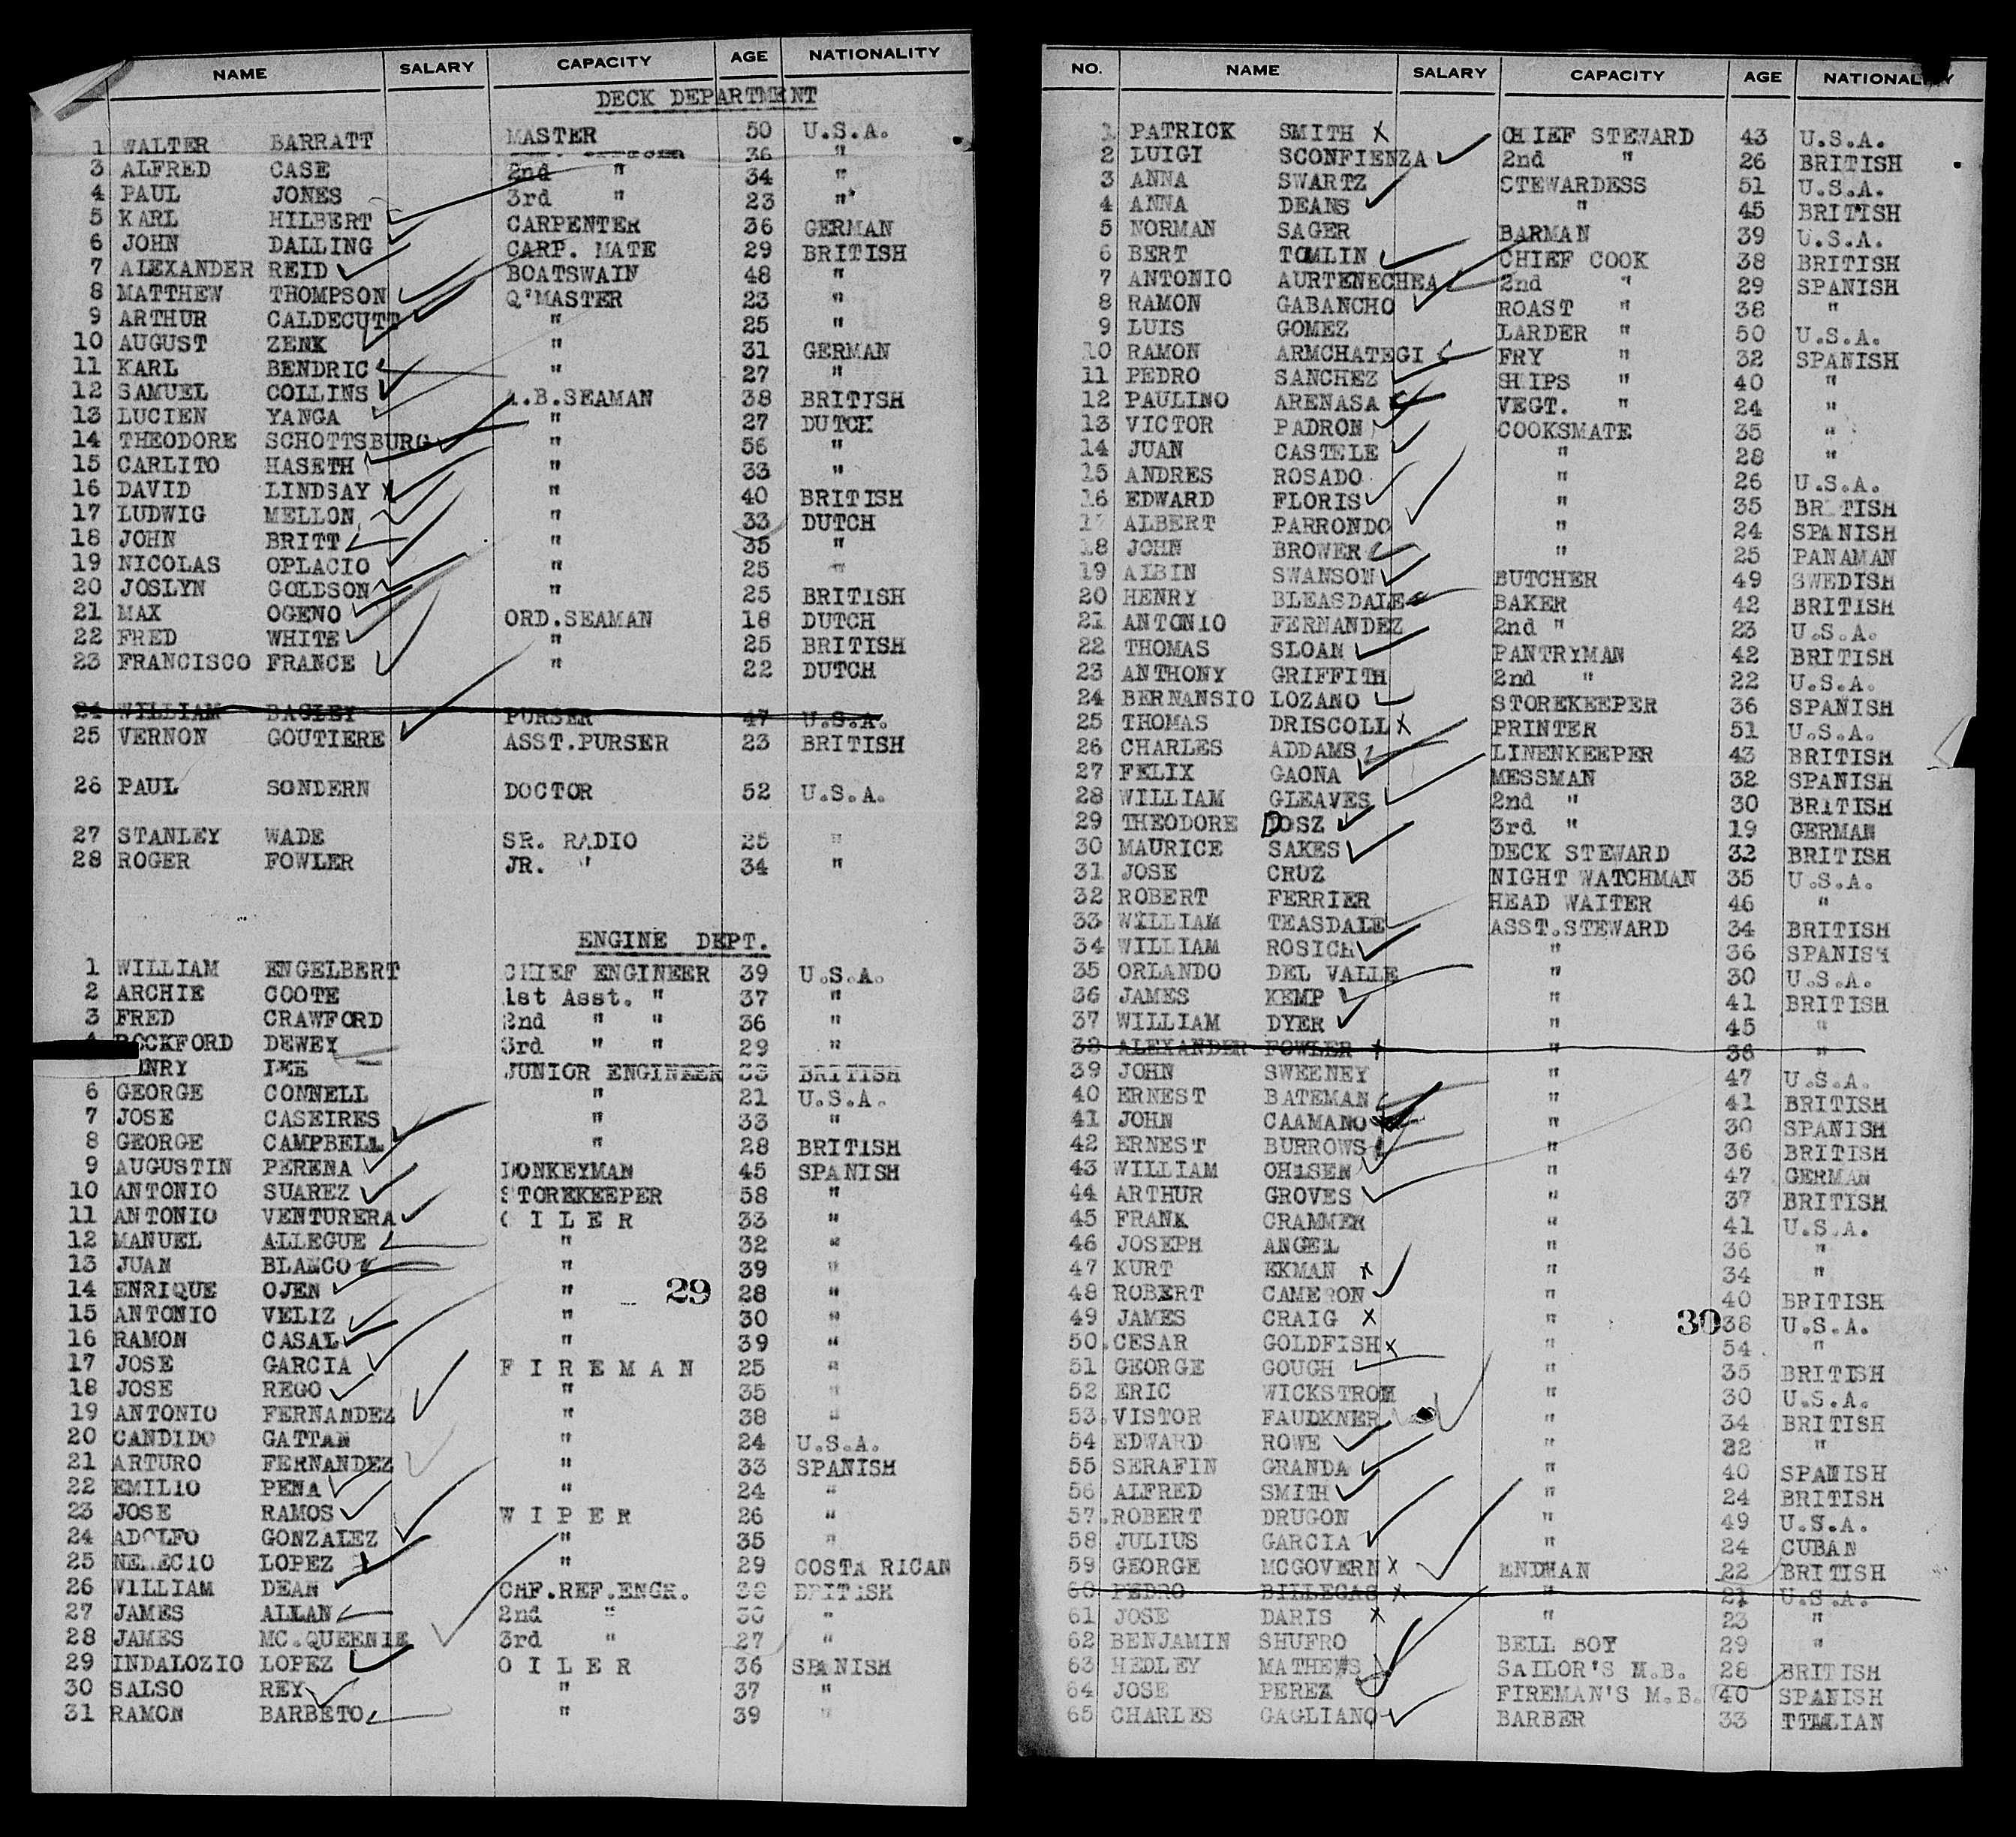 NAME SALARY CAPACITY AGE NATIONALITY
DECK DEPARTMENT
1 WALTER BARRATT MASTER 50 U.S.A.
36 "
3 ALFRED CASE 2nd " 34 "
4 PAUL JONES 3rd " 23 "
5 KARL HILBERT CARPENTER 36 GERMAN
6 JOHN DALLING CARP. MATE 29 BRITISH
7 ALEXANDER REID BOATSWAIN 48 "
8 MATTHEW THOMPSON Q'MASTER 23 "
9 ARTHUR CALDECUTT " 25 "
10 AUGUST ZENK " 31 GERMAN
11 KARL BENDRIC " 27 "
12 SAMUEL COLLINS A.B.SEAMAN 38 BRITISH
13 LUCIEN YANGA " 27 DUTCH
14 THEODORE SCHOTTSBURG " 56 "
15 CARLITO HASETH " 33 "
16 DAVID LINDSAY " 40 BRITISH
17 LUDWIG MELLON " 33 DUTCH
18 JOHN BRITT " 35 "
19 NICOLAS OPLACIO " 25 "
20 JOSLYN GOLDSON " 25 BRITISH
21 MAX OGENO ORD.SEAMAN 18 DUTCH
22 FRED WHITE " 25 BRITISH
23 FRANCISCO FRANCE " 22 DUTCH
24 WILLIAM BAGLEY PURSER 47 U.S.A.
25 VERNON GOUTIERE ASST.PURSER 23 BRITISH
26 PAUL SONDERN DOCTOR 52 U.S.A.
27 STANLEY WADE SR. RADIO 25 "
28 ROGER FOWLER JR. " 34 "
ENGINE DEPT.
1 WILLIAM ENGELBERT CHIEF ENGINEER 39 U.S.A.
2 ARCHIE COOTE 1st Asst. " 37 "
3 FRED CRAWFORD 2nd " " 36 "
ROCKFORD DEWEY 3rd " " 29 "
JUNIOR ENGINEER 33 BRITISH
6 GEORGE CONNELL " 21 U.S.A.
7 JOSE CASEIRES " 33 "
8 GEORGE CAMPBELL " 28 BRITISH
9 AUGUSTIN PERENA DONKEYMAN 45 SPANISH
10 ANTONIO SUAREZ STOREKEEPER 58 "
11 ANTONIO VENTURERA O I L E R 33 "
12 MANUEL ALLEGUE " 32 "
13 JUAN BLANCO " 39 "
14 ENRIQUE OJEN " 29 28 "
15 ANTONIO VELIZ " 30 "
16 RAMON CASAL " 39 "
17 JOSE GARCIA F I R E M A N 25 "
18 JOSE REGO " 35 "
19 ANTONIO FERNANDEZ " 38 "
20 CANDIDO GATTAN " 24 U.S.A.
21 ARTURO FERNANDEZ " 33 SPANISH
22 EMILIO PENA " 24 "
23 JOSE RAMOS W I P E R 26 "
24 ADOLFO GONZALEZ " 35 "
25 NEMECIO LOPEZ " 29 COSTA RICAN
26 WILLIAM DEAN CHF.REF.ENGR. BRITISH
27 JAMES ALLAN 2nd " 30 "
28 JAMES MC.QUEENIE 3rd " 27 "
29 INDALOZIO LOPEZ O I L E R 36 SPANISH
30 SALSO REY " 37 "
31 RAMON BARBETO " 39 "
NO. NAME SALARY CAPACITY AGE NATIONALITY
1 PATRICK SMITH X CHIEF STEWARD 43 U.S.A.
2 LUIGI SCONFIENZA 2nd " 26 BRITISH
3 ANNA SWARTZ STEWARDESS 51 U.S.A.
4 ANNA DEANS " 45 BRITISH
5 NORMAN SAGER BARMAN 39 U.S.A.
6 BERT TOMLIN CHIEF COOK 38 BRITISH
7 ANTONIO AURTENECHEA 2nd " 29 SPANISH
8 RAMON GABANCHO ROAST " 38 "
9 LUIS GOMEZ LARDER " 50 U.S.A.
10 RAMON ARMCHATEGI FRY " 32 SPANISH
11 PEDRO SANCHEZ SHIPS " 40 "
12 PAULINO ARENASA VEGT. " 24 "
13 VICTOR PADRON COOKSMATE 35 "
14 JUAN CASTELE " 28 "
15 ANDRES ROSADO " 26 U.S.A.
16 EDWARD FLORIS " 35 BRITISH
17 ALBERT PARRONDO " 24 SPANISH
18 JOHN BROWER " 25 PANAMAN
19 ALBIN SWANSON BUTCHER 49 SWEDISH
20 HENRY BLEASDALE BAKER 42 BRITISH
21 ANTONIO FERNANDEZ 2nd " 23 U.S.A.
22 THOMAS SLOAN PANTRYMAN 42 BRITISH
23 ANTHONY GRIFFITH 2nd " 22 U.S.A.
24 BERNANSIO LOZANO STOREKEEPER 36 SPANISH
25 THOMAS DRISCOLL X PRINTER 51 U.S.A.
26 CHARLES ADDAMS LINENKEEPER 43 BRITISH
27 FELIX GAONA MESSMAN 32 SPANISH
28 WILLIAM GLEAVES 2nd " 30 BRITISH
29 THEODORE DOSZ 3rd " 19 GERMAN
30 MAURICE SAKES DECK STEWARD 32 BRITISH
31 JOSE CRUZ NIGHT WATCHMAN 35 U.S.A.
32 ROBERT FERRIER HEAD WAITER 46 "
33 WILLIAM TEASDALE ASST.STEWARD 34 BRITISH
34 WILLIAM ROSICH " 36 SPANISH
35 ORLANDO DEL VALLE " 30 U.S.A.
36 JAMES KEMP " 41 BRITISH
37 WILLIAM DYER " 45 "
38 ALEXANDER FOWLER X " 36 "
39 JOHN SWEENEY " 47 U.S.A.
40 ERNEST BATEMAN " 41 BRITISH
41 JOHN CAAMANO " 30 SPANISH
42 ERNEST BURROWS " 36 BRITISH
43 WILLIAM OHLSEN " 47 GERMAN
44 ARTHUR GROVES " 37 BRITISH
45 FRANK CRAMMER " 41 U.S.A.
46 JOSEPH ANGEL " 36 "
47 KURT EKMAN X " 34 "
48 ROBERT CAMERON " 40 BRITISH
49 JAMES CRAIG X " 30 38 U.S.A.
50. CESAR GOLDFISH X " 54 "
51 GEORGE GOUGH " 35 BRITISH
52 ERIC WICKSTROM " 30 U.S.A.
53. VISTOR FAUDKNER " 34 BRITISH
54 EDWARD ROWE " 22 "
55 SERAFIN GRANDA " 40 SPANISH
56 ALFRED SMITH " 24 BRITISH
57. ROBERT DRUGON " 49 U.S.A.
58 JULIUS GARCIA " 24 CUBAN
59 GEORGE MCGOVERN X 22 BRITISH
60 PEDRO BILLEGAS X " 21 U.S.A.
61 JOSE DARIS X " 23 "
62 BENJAMIN SHUFRO BELL BOY 29 "
63 HEDLEY MATHEWS SAILOR'S M.B. 28 BRITISH
64 JOSE PEREZ FIREMAN'S M.B. 40 SPANISH
65 CHARLES GAGLIANO BARBER 33